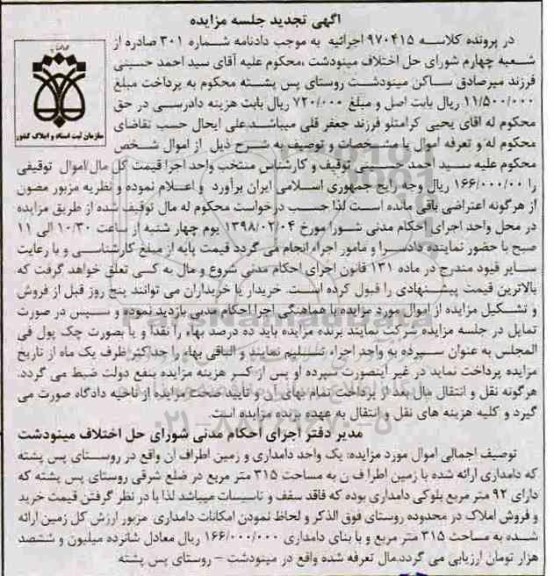 آگهی تجدید جلسه مزایده
در پرونده کلاسه ۹۷۰۴۱۵ اجرائیه به موجب دادنامه شماره ۳۰۱ صادره از
شعبه چهارم شورای حل اختلاف مینودشت ،محکوم علیه آقای سید احمد حسینی
فرزند میرصادق ساکن مینودشت روستای پس پشته محکوم به پرداخت مبلغ
۱۱/۵۰۰/۰۰۰ ریال بابت اصل و مبلغ ۷۲۰/۰۰۰ ریال بابت هزینه دادرسی در حق
محکوم له اقای یحیی کرامتلو فرزند جعفر قلی میباشد.علی ایحال حسب تقاضای
محکوم له و تعرفه اموال با مشخصات و توصیف به شرح ذیل از اموال شخص
محکوم علیه سید احمد حسینی توقیف و کارشناس منتخب واحد اجرا قیمت کل مال/اموال توقیفی
را ۱۶۶/۰۰۰/۰۰ ریال وجه رایج جمهوری اسلامی ایران برآورد و اعلام نموده و نظریه مزبور مصون
از هرگونه اعتراضی باقی مانده است لذا حسب درخواست محکوم له مال توقیف شده از طریق مزایده
در محل واحد اجرای احکام مدنی شورا مورخ ۱۳۹۸/۰۲/۰۴ یوم چهار شنبه از ساعت ۱۰/۳۰ الی ۱۱
صبح با حضور نماینده دادسرا و مامور اجراء انجام می گردد قیمت پایه از مبلغ کارشناسی و با رعایت
سایر قیود مندرج در ماده ۱۳۱ قانون اجرای احکام مدنی شروع و مال به کسی تعلق خواهد گرفت که
بالاترین قیمت پیشنهادی را قبول کرده است. خریدار یا خریداران می توانند پنج روز قبل از فروش
و تشکیل مزایده از اموال مورد مزایده با هماهنگی اجرا احکام مدنی بازدید نموده و سپس در صورت
تمایل در جلسه مزایده شرکت نمایند برنده مزایده باید ده درصد بهاء را نقدا و یا بصورت چک پول فی
المجلس به عنوان سپرده به واحد اجراء تسلیم نمایند و الباقی بهاء را حداکثر ظرف یک ماه از تاریخ
مزایده پرداخت نماید در غیر اینصورت سپرده او پس از کسر هزینه مزایده بنفع دولت ضبط می گردد.
هرگونه نقل و انتقال مال بعد از پرداخت تمام بهای آن و تایید صحت مزایده از ناحیه دادگاه صورت می
گیرد و کلیه هزینه های نقل و انتقال به عهده برنده مزایده است.
مدیر دفتر اجرای احکام مدنی شورای حل اختلاف مینودشت
توصیف اجمالی اموال مورد مزایده: یک واحد دامداری و زمین اطراف ان واقع در روستای پس پشته
که دامداری ارائه شده با زمین اطرا ف ن به مساحت ۳۱۵ متر مربع در ضلع شرقی روستای پس پشته که
دارای ۹۲ متر مربع بلوکی دامداری بوده که فاقد سقف و تاسیسات میباشد لذا با در نظر گرفتن قیمت خرید
و فروش املاک در محدوده روستای فوق الذکر و لحاظ نمودن امکانات دامداری مزبور ارزش کل زمین ارائه
شده به مساحت ۳۱۵ متر مربع و با بنای دامداری ۱۶۶/۰۰۰/۰۰۰ ریال معادل شانزده میلیون و ششصد
هزار تومان ارزیابی می گردد.مال تعرفه شده واقع در مینودشت – روستای پس پشته
سازمان ثبت اسناد و املاک کشور
۰۲۱-۸۸۳۴۹۶۷۰-۵